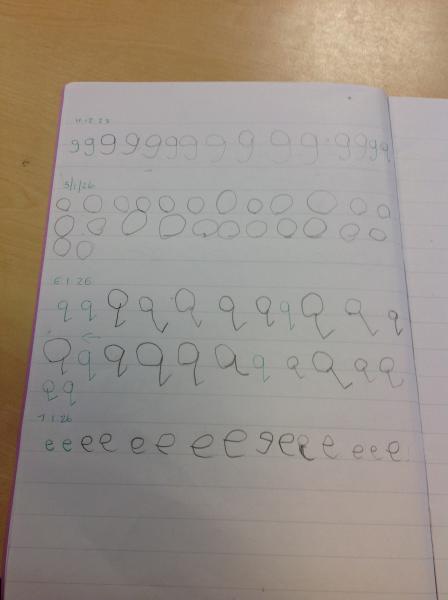 11.12.25
g g g g g g g g g g g g g g g
5/1/26
o o o o o o o o o o o o
o o o o o o o o o o o
o o
6.1.26
q q q q q q q q q q q
q q q q q a q q q q q
q q
7.1.26
e e e e e e e e g e e e e e e